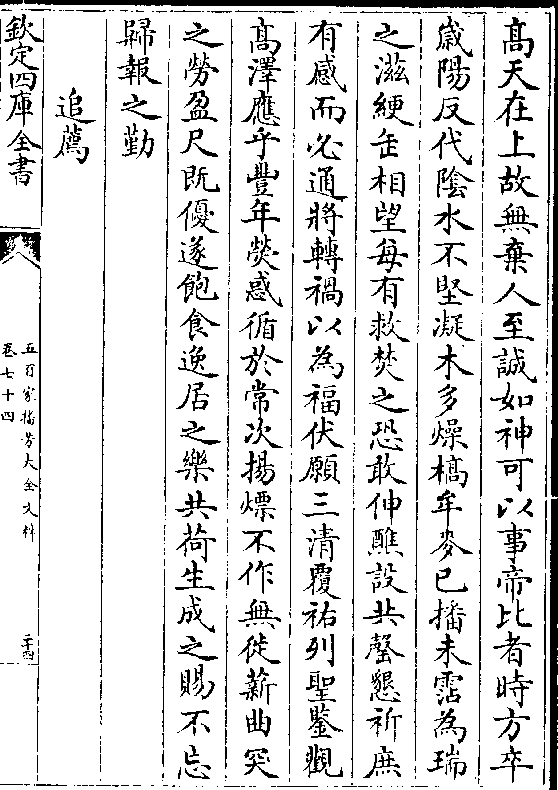 髙天在上故無棄人至誠如神可以事帝比者時方卒
歲陽反代陰水不堅凝木多燥槁牟麥已播未霑為瑞
之滋綆缶相望每有救焚之恐敢伸醮設共罄懇祈庶
有感而必通將轉禍以為福伏願三清覆祐列聖鑒觀
髙澤應乎豐年熒惑循於常次揚熛不作無徙薪曲突
之勞盈尺既優遂飽食逸居之樂共荷生成之賜不忘
歸報之勤
追薦
欽定四庫全書
五百家播芳大全文粹
卷七十四
二十四